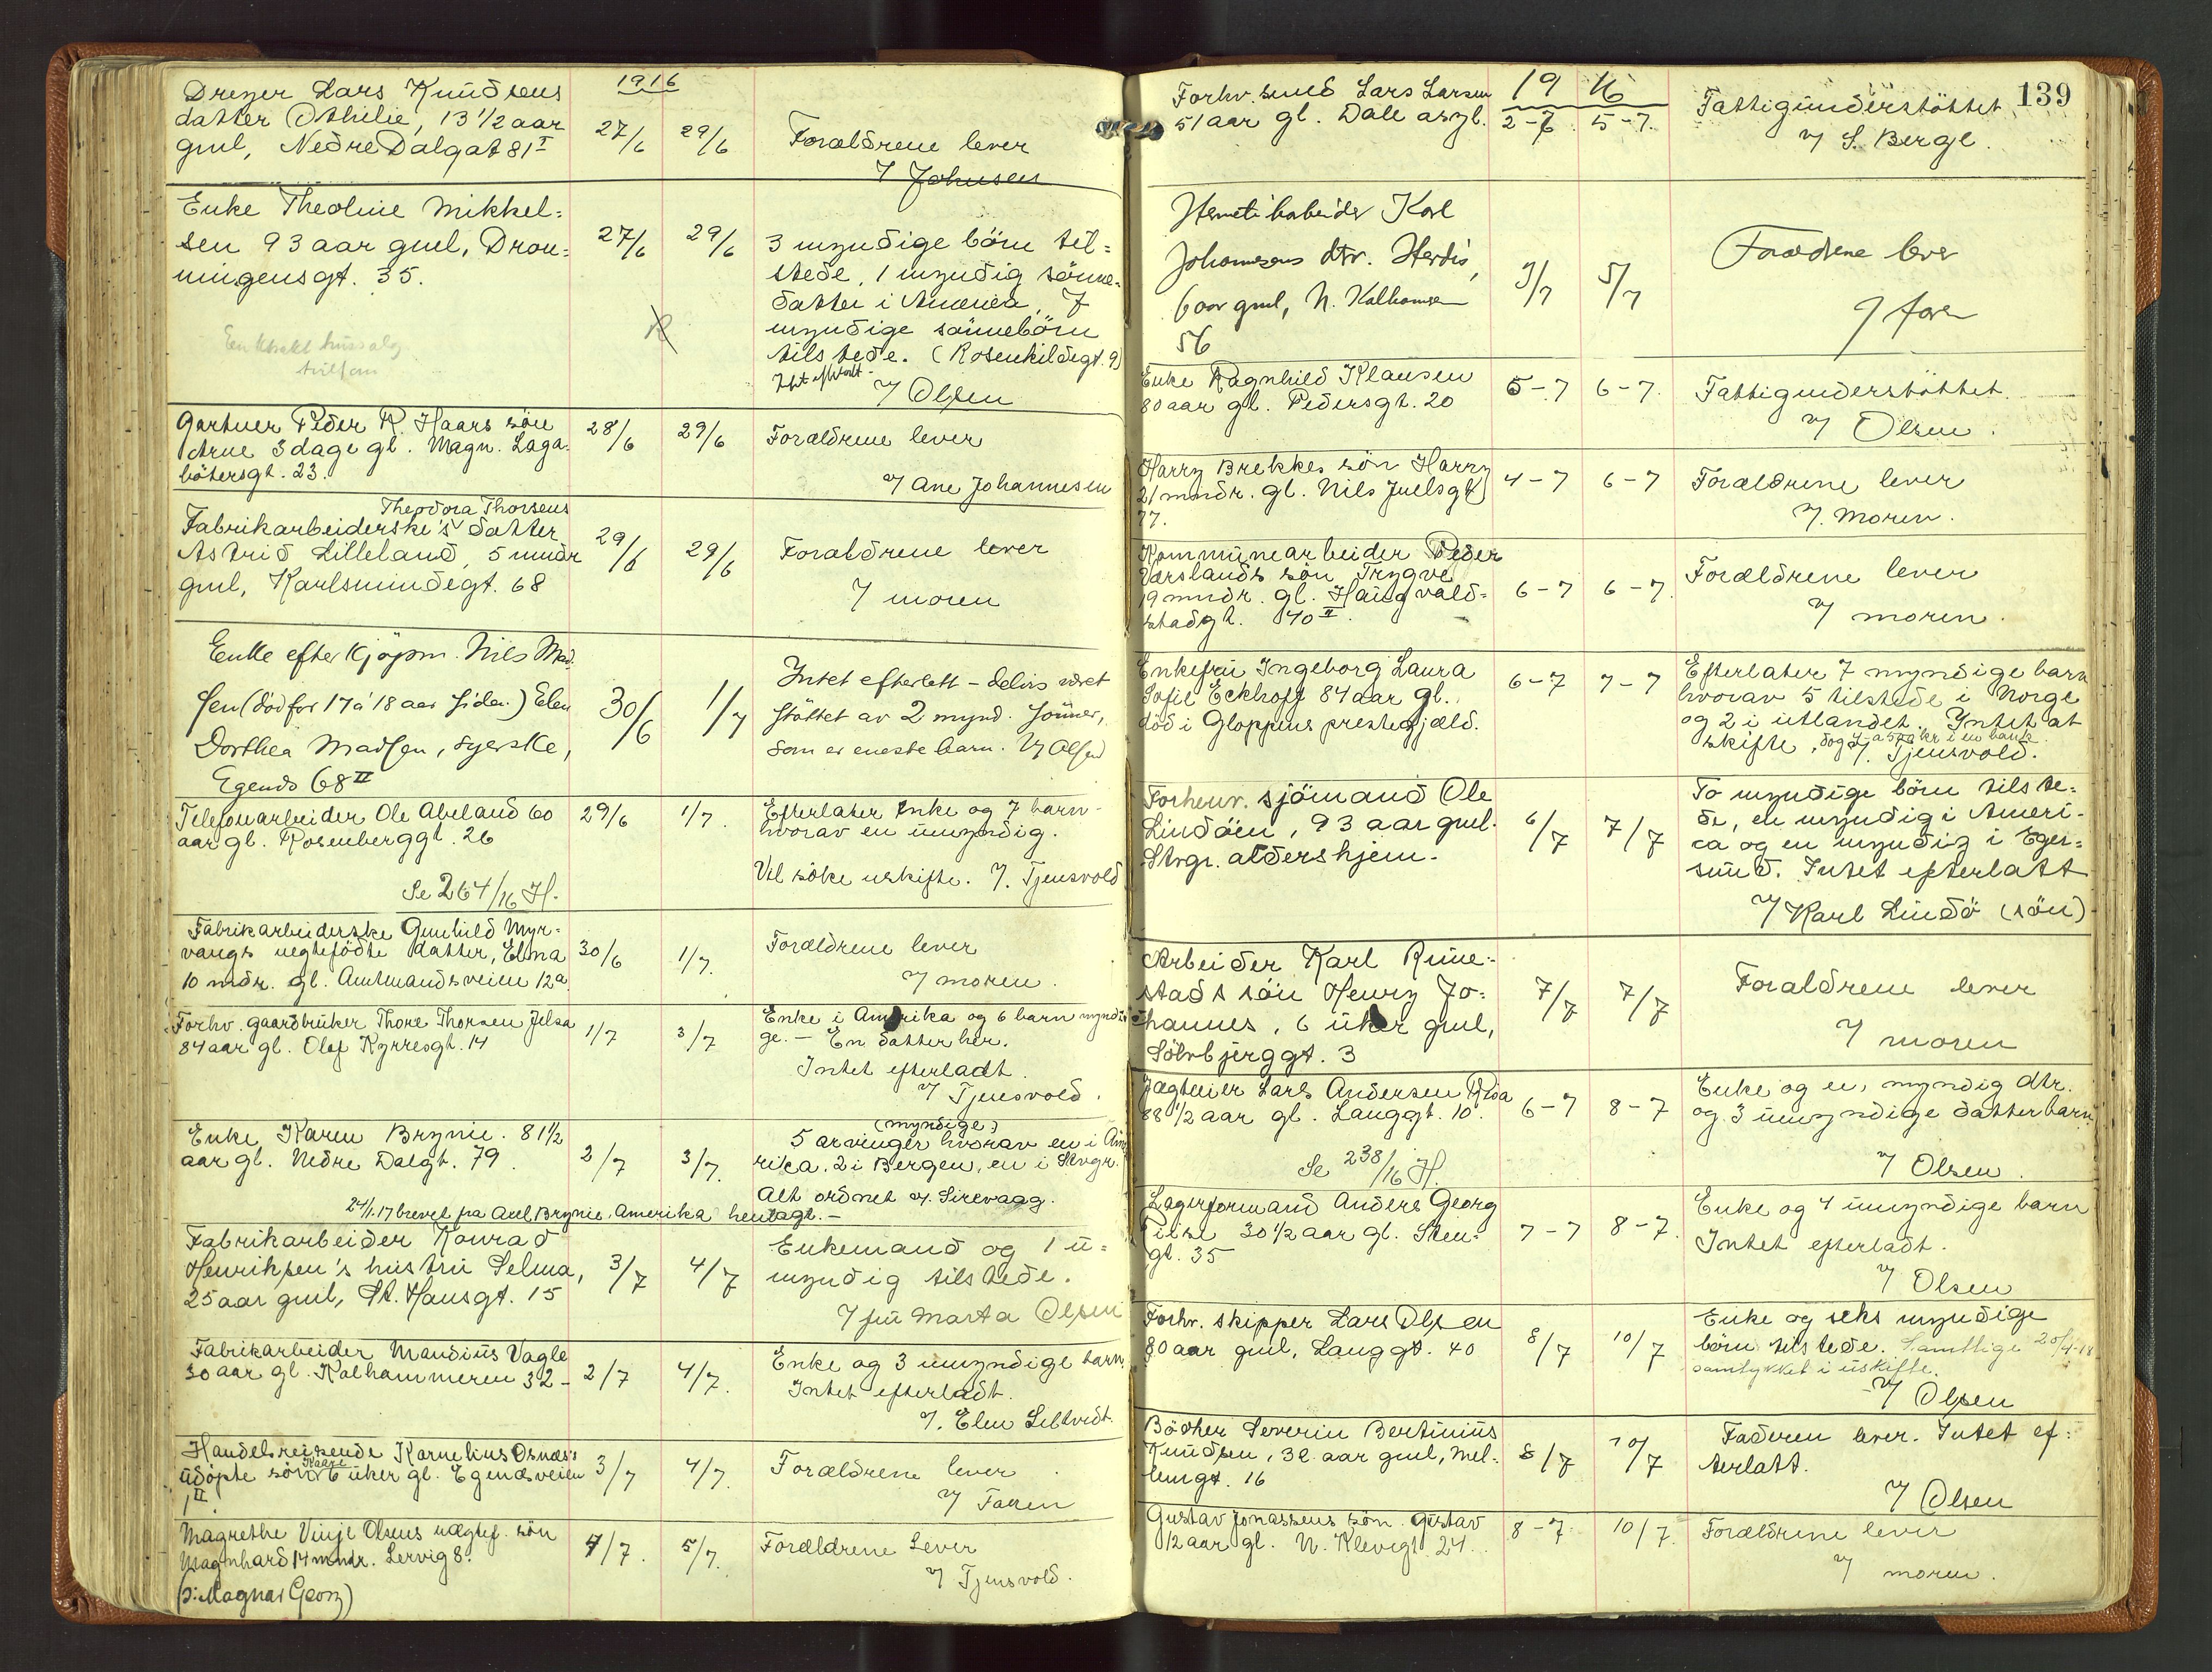 1916
Dreyer Lars Knudsens
datter Othilie, 13 1/2 aar
gml, Nedre Dalgat 81 I
27/6 29/6
Forældrene lever
v/ Johnsen
Enke Theoline Mikkel=
sen 93 aar gml, Dron=
ningensgt. 35.
27/6 29/6
3 myndige börn til=
stede, 1 myndig sönne=
datter i America, 7
myndige sönnebörn
tilstede. (Rosenkildegt. 9)
Intet efterladt.
v/ Olsen
Gartner Peder R. Haars sön
Arne 3 dage gl. Magn. Laga-
bötersgt. 23.
28/6 29/6
Forældrene lever
v/ Ane Johannesen
Theodora Thorsens
Fabrikarbeiderske's datter
Astrid Lilleland, 5 mndr
gml, Karlsmindegt. 68
29/6 29/6
Forældrene lever
v/ moren
Enke efter kjöpm. Nils Mad-
sen (död for 17 á 18 aar siden) Elen
Dorthea Madsen, syerske,
Egends 68 II
30/6 1/7
Intet efterlatt - delvis været
støttet av 2 mynd. sönner,
som er eneste barn. v/ Olsen
Telefonarbeider Ole Abeland 60
aar gl. Rosenberggt. 26
Se 264/16 H.
29/6 1/7.
Efterlater Enke og 7 barn -
hvorav en umyndig.
Vil söke uskifte. v/. Tjensvold
Fabrikarbeiderske Gunhild Myr-
vangs uegtefödte datter, Elma
10 mdr. gl. Amtmandsveien 12a
30/6 1/7.
Forældrene lever
v/ moren.
Forhv. gaardbruker Thore Thorsen Jelsa
84 aar gl. Olaf Kyrresgt. 14
1/7 3/7
Enke i Amerika og 6 barn myndi
ge. - En datter her.
Intet efterladt.
v/ Tjensvold.
Enke Karen Brynie. 81 1/2
aar gl. Nedre Dalgt. 79.
2/7 3/7.
(myndige)
5 arvinger hvorav en i Ame
rika. 2 i Bergen, en i Stvgr.
Alt ordnet v/. Sirevaag.
24/1.17 brevet fra Axel Brynie. Amerika henlagt. -
Fabrikarbeider Konrad
Henriksen's hustru Selma,
25 aar gml, St. Hansgt. 15
3/7 4/7
Enkemand og 1 u=
myndig tilstede.
v/ fru Marta Olsen
Fabrikarbeider Mandius Vagle
30 aar gl. Kalhammeren 32 -
2/7 4/7.
Enke og 3 umyndige barn.
Intet efterladt.
v/. Elen Seltvedt.
Handelsreisende Karnelius Osnæs's
udöpte sön Kaare 6 uker gl. Egenæsveien
1 II
3/7 4/7.
Forældrene lever.
v/ Faren
Magrethe Vinje Olsens uægtef. sön
Magnhard 14 mndr. Lervig 8.
(ɔ: Magnar Georg)
4/7. 5/7.
Forældrene Lever
v/ Tjensvold.
139
19 16
Forhv. smed Lars Larsen
51 aar gl. Dale asyl.
2-7. 5-7.
Fattigunderstöttet
v/ S. Berge.
Hermetikarbeider Karl
Johannesens dtr. Herdis,
6 aar gml, N. Kalhammer
56
3/7 5/7
Forældrene lever
v/ faren
Enke Ragnhild Klausen
80 aar gl. Pedersgt. 20
5-7 6-7.
Fattigunderstöttet.
v/ Olsen.
Harry Brekkes sön Harry
21 mndr. gl. Nils Juelsgt
77.
4-7 6-7
Forældrene lever
v/. moren.
Kommunearbeider Peder
Værslands sön Trygve
19 mndr. gl. Haugvald=
stadgt. 40 II.
6-7 6-7.
Forældrene lever
v/ moren.
Enkefru Ingeborg Laura
Sofie Eckhoff 84 aar gl.
död i Gloppens prestegjæld.
6-7 7-7
Efterlater 7 myndige barn
hvorav 5 tilstede i Norge
og 2 i utlandet. Intet at
skifte, dog kr i en bank.
v/. Tjensvold.
Forhenv. sjömand Ole
Lindöen, 93 aar gml.
Stvgr. aldershjem.
6/7 7/7
To myndige börn tilste=
de, en myndig i Ameri-
ca og en myndig i Eger=
sund. Intet efterlatt
v/ Karl Lindö (sön)
Arbeider Karl Rune-
stads sön Henry Jo=
hannes, 6 uker gml,
Sölvbjerggt. 3
7/7 7/7
Forældrene lever
v/ moren
Jægtmeier Lars Andersen Risa
88 1/2 aar gl. Langgt. 10.
Se 238/16 H.
6-7 8-7
Enke og en myndig dtr.
og 3 umyndige datterbarn.
v/ Olsen
Lagerformand Anders Georg
Tilse 30 1/2 aar gl. Sten-
gt. 35
7-7 8-7.
Enke og 4 umyndige barn
Intet efterladt.
v/ Olsen
Forhv. skipper Lars Olsen
80 aar gml, Langgt. 40
8/7 10/7
Enke og seks myndige
börn tilstede. Samtlige 20/4-18
samtykket i uskifte.
v/ Olsen
Bödker Severin Bertinius
Knudsen, 32 aar gml, Mel-
lemgt. 16
8/7 10/7
Faderen lever. Intet ef=
terlatt.
v/ Olsen
Gustav Jonassens sön Gustav
12 aar gl. N. Klevegt. 24.
8-7. 10/7.
Forældrene lever
v/ moren.